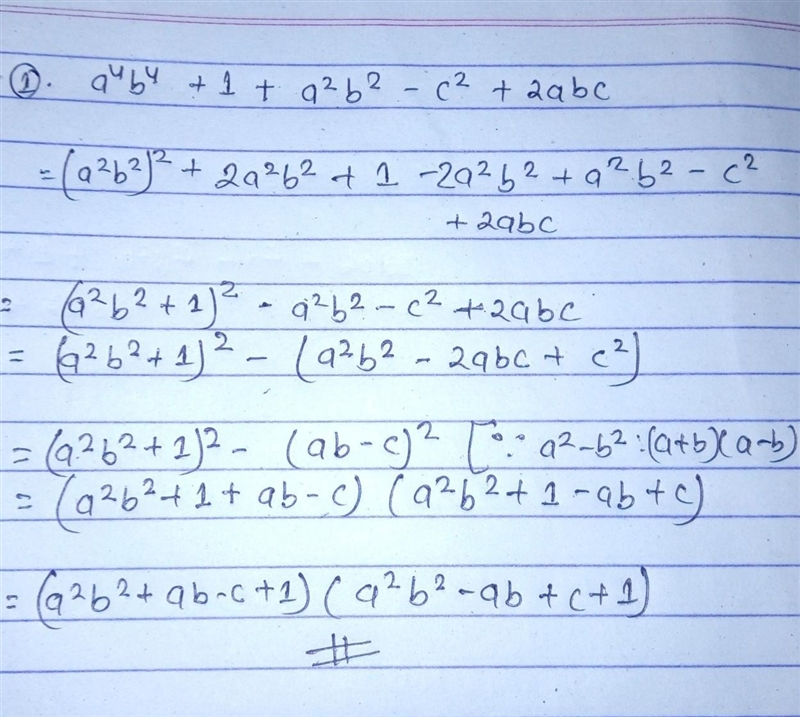 ①. a⁴b⁴ + 1 + a²b² - c² + 2abc
= (a²b²)² + 2a²b² + 1 - 2a²b² + a²b² - c²
+ 2abc
= (a²b² + 1)² - a²b² - c² + 2abc
= (a²b² + 1)² - (a²b² - 2abc + c²)
= (a²b² + 1)² - (ab - c)² [∵ a² - b² : (a+b)(a-b)
= (a²b² + 1 + ab - c) (a²b² + 1 - ab + c)
= (a²b² + ab - c + 1) (a²b² - ab + c + 1)
#